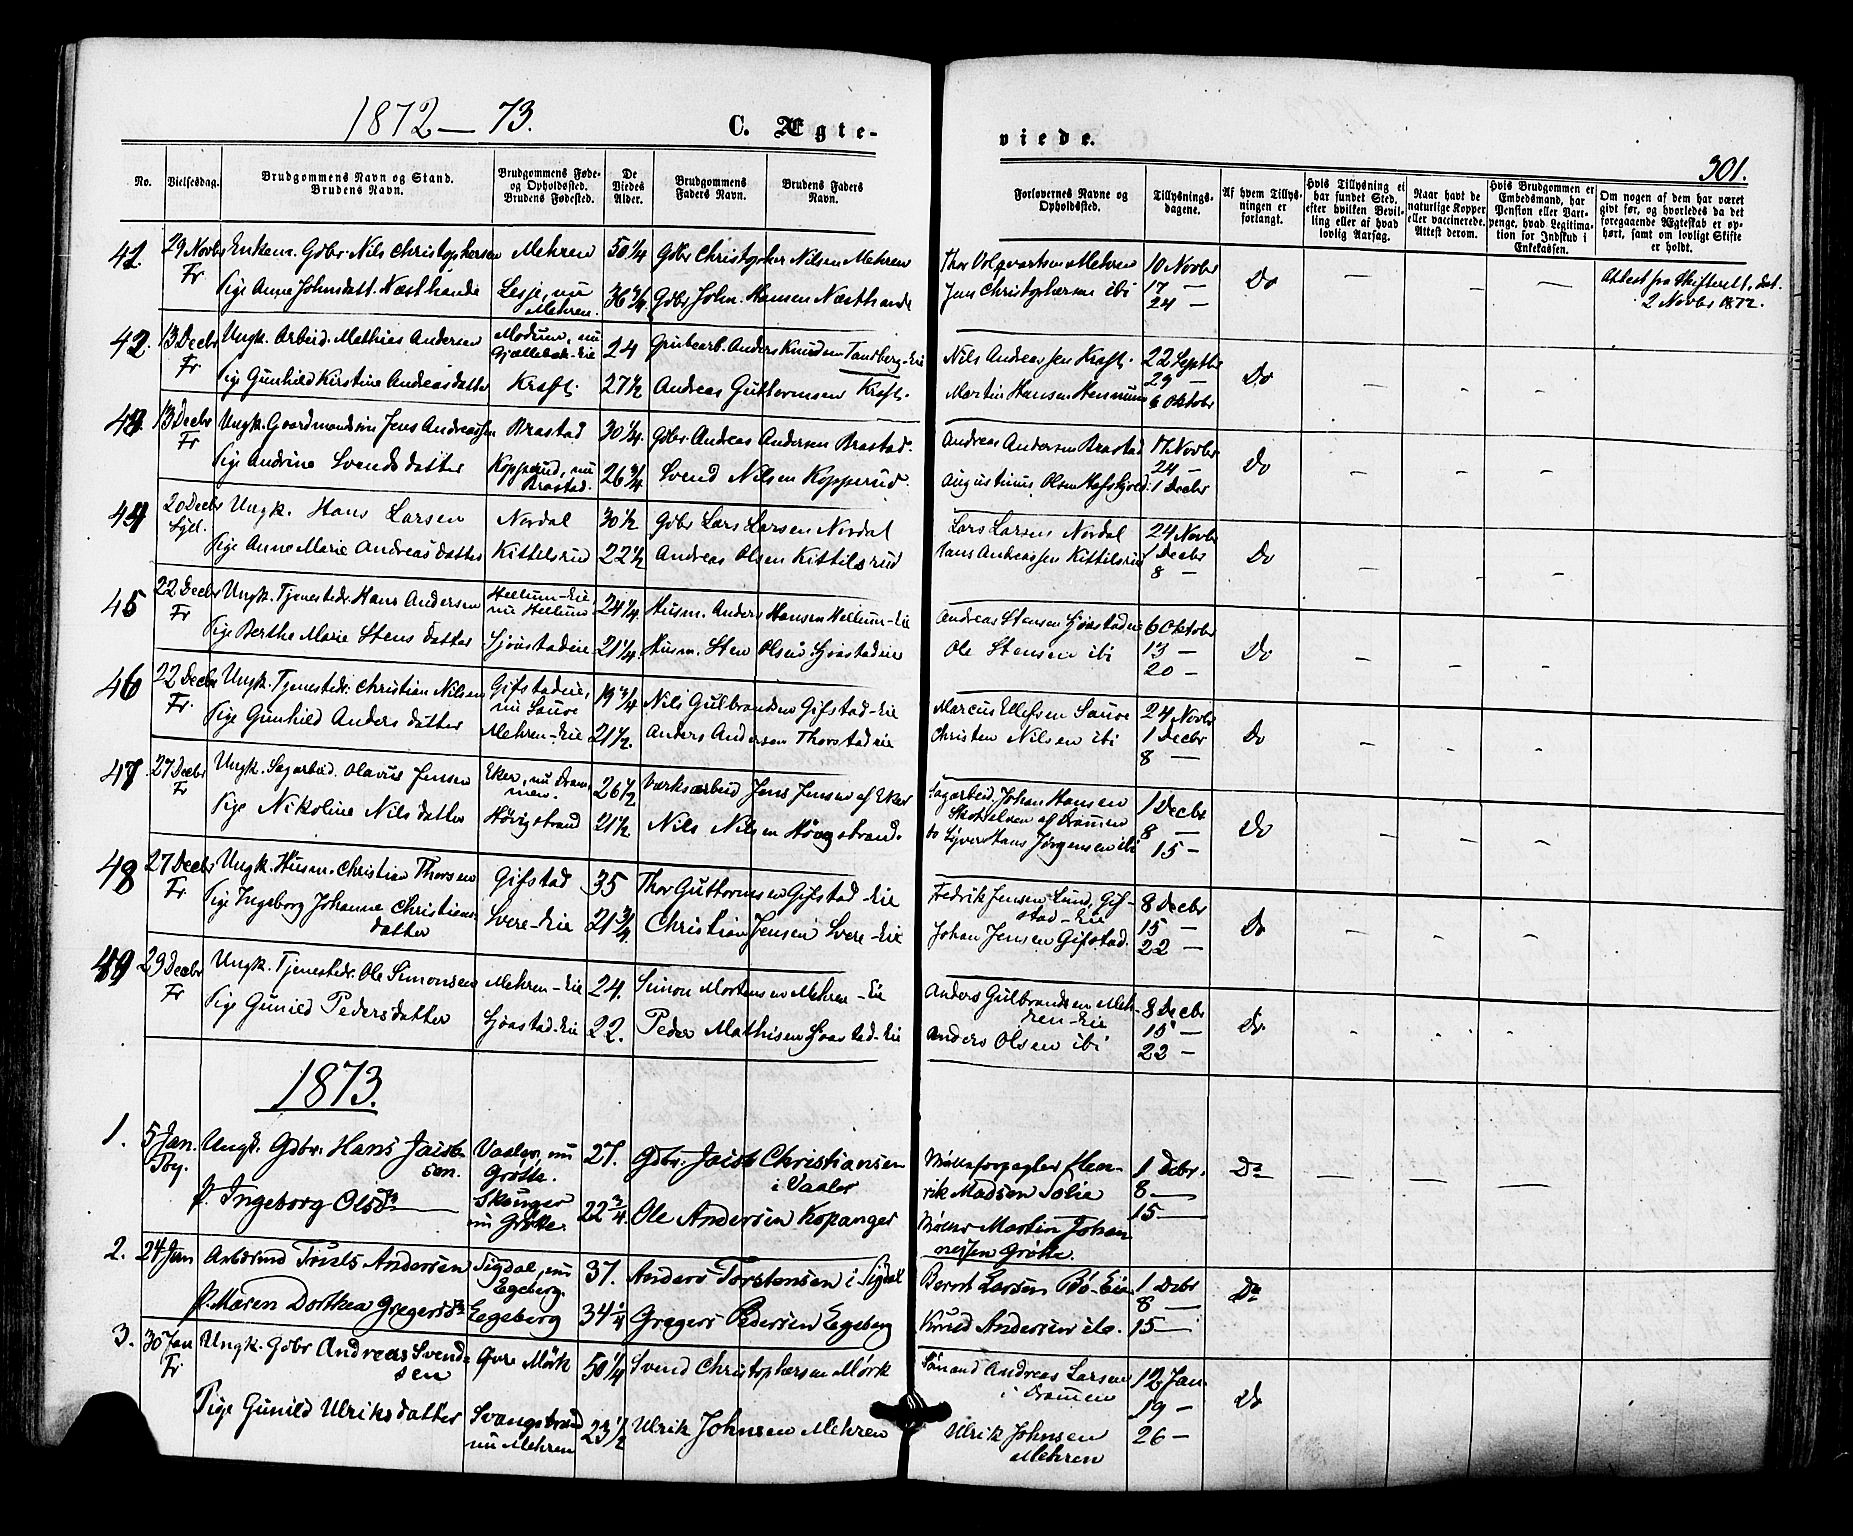 1872 — 73.
C. Ægte-
viede.
301.
No.
Vielsesdag.
Brudgommens Navn og Stand.
Brudens Navn.
Brudgommens Føde-
og Opholdsted.
Brudens Fødested.
De
Viedes
Alder.
Brudgommens
Faders Navn.
Brudens Faders
Navn.
Forlovernes Navne og
Opholdsted.
Tillysnings-
dagene.
Af hvem Tillys-
ningen er
forlangt.
Hvis Tillysning ei
har fundet Sted,
efter hvilken Bevil-
ling eller af hvad
lovlig Aarsag.
Naar havt de
naturlige Kopper
eller vaccinerede.
Attest derom.
Hvis Brudgommen er
Embedsmand, har
Pension eller Vart-
penge, hvad Legitima-
tion for Indskud i
Enkekassen.
Om nogen af dem har været
givt før, og hvorledes da det
foregaaende Ægteskab er op-
hørt, samt om lovligt Skifte
er holdt.
41. 29 Novbr Enkem. Gdbr Nils Christophersen Mehren 50 1/4 Gdbr Christopher Nilsen Mehren Thor Volqvartsen Mehren 10 Novbr Do — - — Attest fra Skifterett. dat.
Fr Pige Anne Johnsdatt. Næsthande Lesje, nu Mehren. 36 3/4 Gdbr John Hansen Næsthande Jens Christophersen ibi 17 — 24 — 2 Novbr 1872.
42. 13 Decbr Ungk. Arbeid. Mathias Andersen Modum, nu Gjellebæk-Eie 24 Grubearb. Anders Knudsen Tandberg-Eie Nils Andreassen Kraft. 22 Septbr Do — - -
Fr Pige Gunhild Kirstine Andreasdatter Kraft. 27 1/2 Andreas Guttormsen Kraft. Martin Hansen Hennum 29 — 6 Oktobr
43. 13 Decbr Ungk. Gaardmandssøn Jens Andreassen Brastad 30 1/4 Gdbr Andreas Andersen Brastad. Andreas Andersen Brastad 17 Novbr Do — - -
Fr Pige Andrine Svendsdatter Kopperud, nu Brastad. 26 3/4 Svend Nilsen Kopperud. Augustinus Olsen 24 — 1 Decbr
44 20 Decbr Ungk. Hans Larsen Nordal 30 1/2 Gdbr Lars Larsen Nordal Lars Larsen Nordal 24 Novbr Do - - -
Syll. Pige Anne Marie Andreasdatter Kittelsrud 22 1/2 Andreas Olsen Kittilsrud Hans Andreassen Kittilsrud 1 Decbr 8 —
45 22 Decbr Ungk. Tjenestedr. Hans Andersen Hellum-Eie, nu Hellum 24 1/4 Husm. Anders Hansen Hellum-Eie Andreas Stensen Gjøstadeie 6 Oktobr Do - - -
Fr Pige Berthe Marie Stensdatter Gjøstadeie 21 1/4 Husm. Sten Olsen Gjøstadeie Ole Stensen ibi 13 — 20 —
46 22 Decbr Ungk. Tjenestedr. Christian Nilsen Gifstadeie, nu Sauve 19 3/4 Nils Gulbrandsen Gifstad-Eie Marcus Ellefsen Sauve 24 Novbr Do - - -
Fr. Pige Gunhild Andersdatter Mehren-Eie 21 1/2. Anders Andersen Thorstadeie Christen Nilsen ibi 1 Decbr 8 —
47 27 Decbr Ungk. Sagarbeid. Olavus Jensen Eker, nu Drammen. 26 1/2 Værksarbeid Jens Jensen af Eker Sagarbeid. Johan Hansen Skotselven af Drammen 1 Decbr Do - - -
Fr Pige Nikoline Nilsdatter Høvigstrand 21 1/2 Nils Nilsen Høvigstrand. Hans Jørgensen ibi 8 — 15 —
48 27 Decbr Ungk. Husm. Christian Thorsen Gifstad 35 Thor Guttormsen Gifstad-Eie Fredrik Jensen Lund, Gifstad-Eie 8 Decbr Do - - -
Fr Pige Ingeborg Johanne Christiansdatter Svere-Eie 21 3/4 Christian Jensen Svere-Eie Johan Jensen Gifstad. 15 — 22 —
49 29 Decbr Ungk. Tjenestedr. Ole Simonsen Mehren-Eie 24. Simon Mortensen Mehren-Eie Anders Gulbrandsen Mehren-Eie 8 Decbr Do - - -
Fr Pige Gunild Pedersdatter Gjøstad-Eie 22. Peder Mathisen Gjøstad-Eie Anders Olsen ibi 15 — 22 —
1873.
1. 5 Jan. Ungk. Gdbr. Hans Jacobsen. Vaaler, nu Grøtte. 27. Gdbr. Jacob Christiansen i Vaaler Mølleforpagter Henrik Madsen Solie 1 Decbr. 8 — Do — - -
Tby. P. Ingeborg Olsdr Skouger nu Grøtte. 22 3/4 Ole Andersen Kopanger Møller Martin Johannessen Grøtte. 15 —
2. 24 Jan Arbeismd Truls Andersen Sigdal, nu Egeberg. 37. Anders Torstensen i Sigdal Bernt Larsen Bø-Eie 1 Debr Do
P. Maren Dorthea Gregersdr Egeberg 34 1/4 Gregers Pedersen Egeberg Knud Andersen 8 — 15 —
3. 30 Jan Ungk. Gdbr Andreas Svendsen Øvre Mørk 50 1/4 Svend Christophersen Mørk Sømand Andreas Larsen i Drammen 12 Jan. Do
Fr Pige Gunild Ulriksdatter Svangstrand nu Mehren 23 1/2 Ulrik Johnsen Mehren Ulrik Johnsen Mehren 19 — 26 —